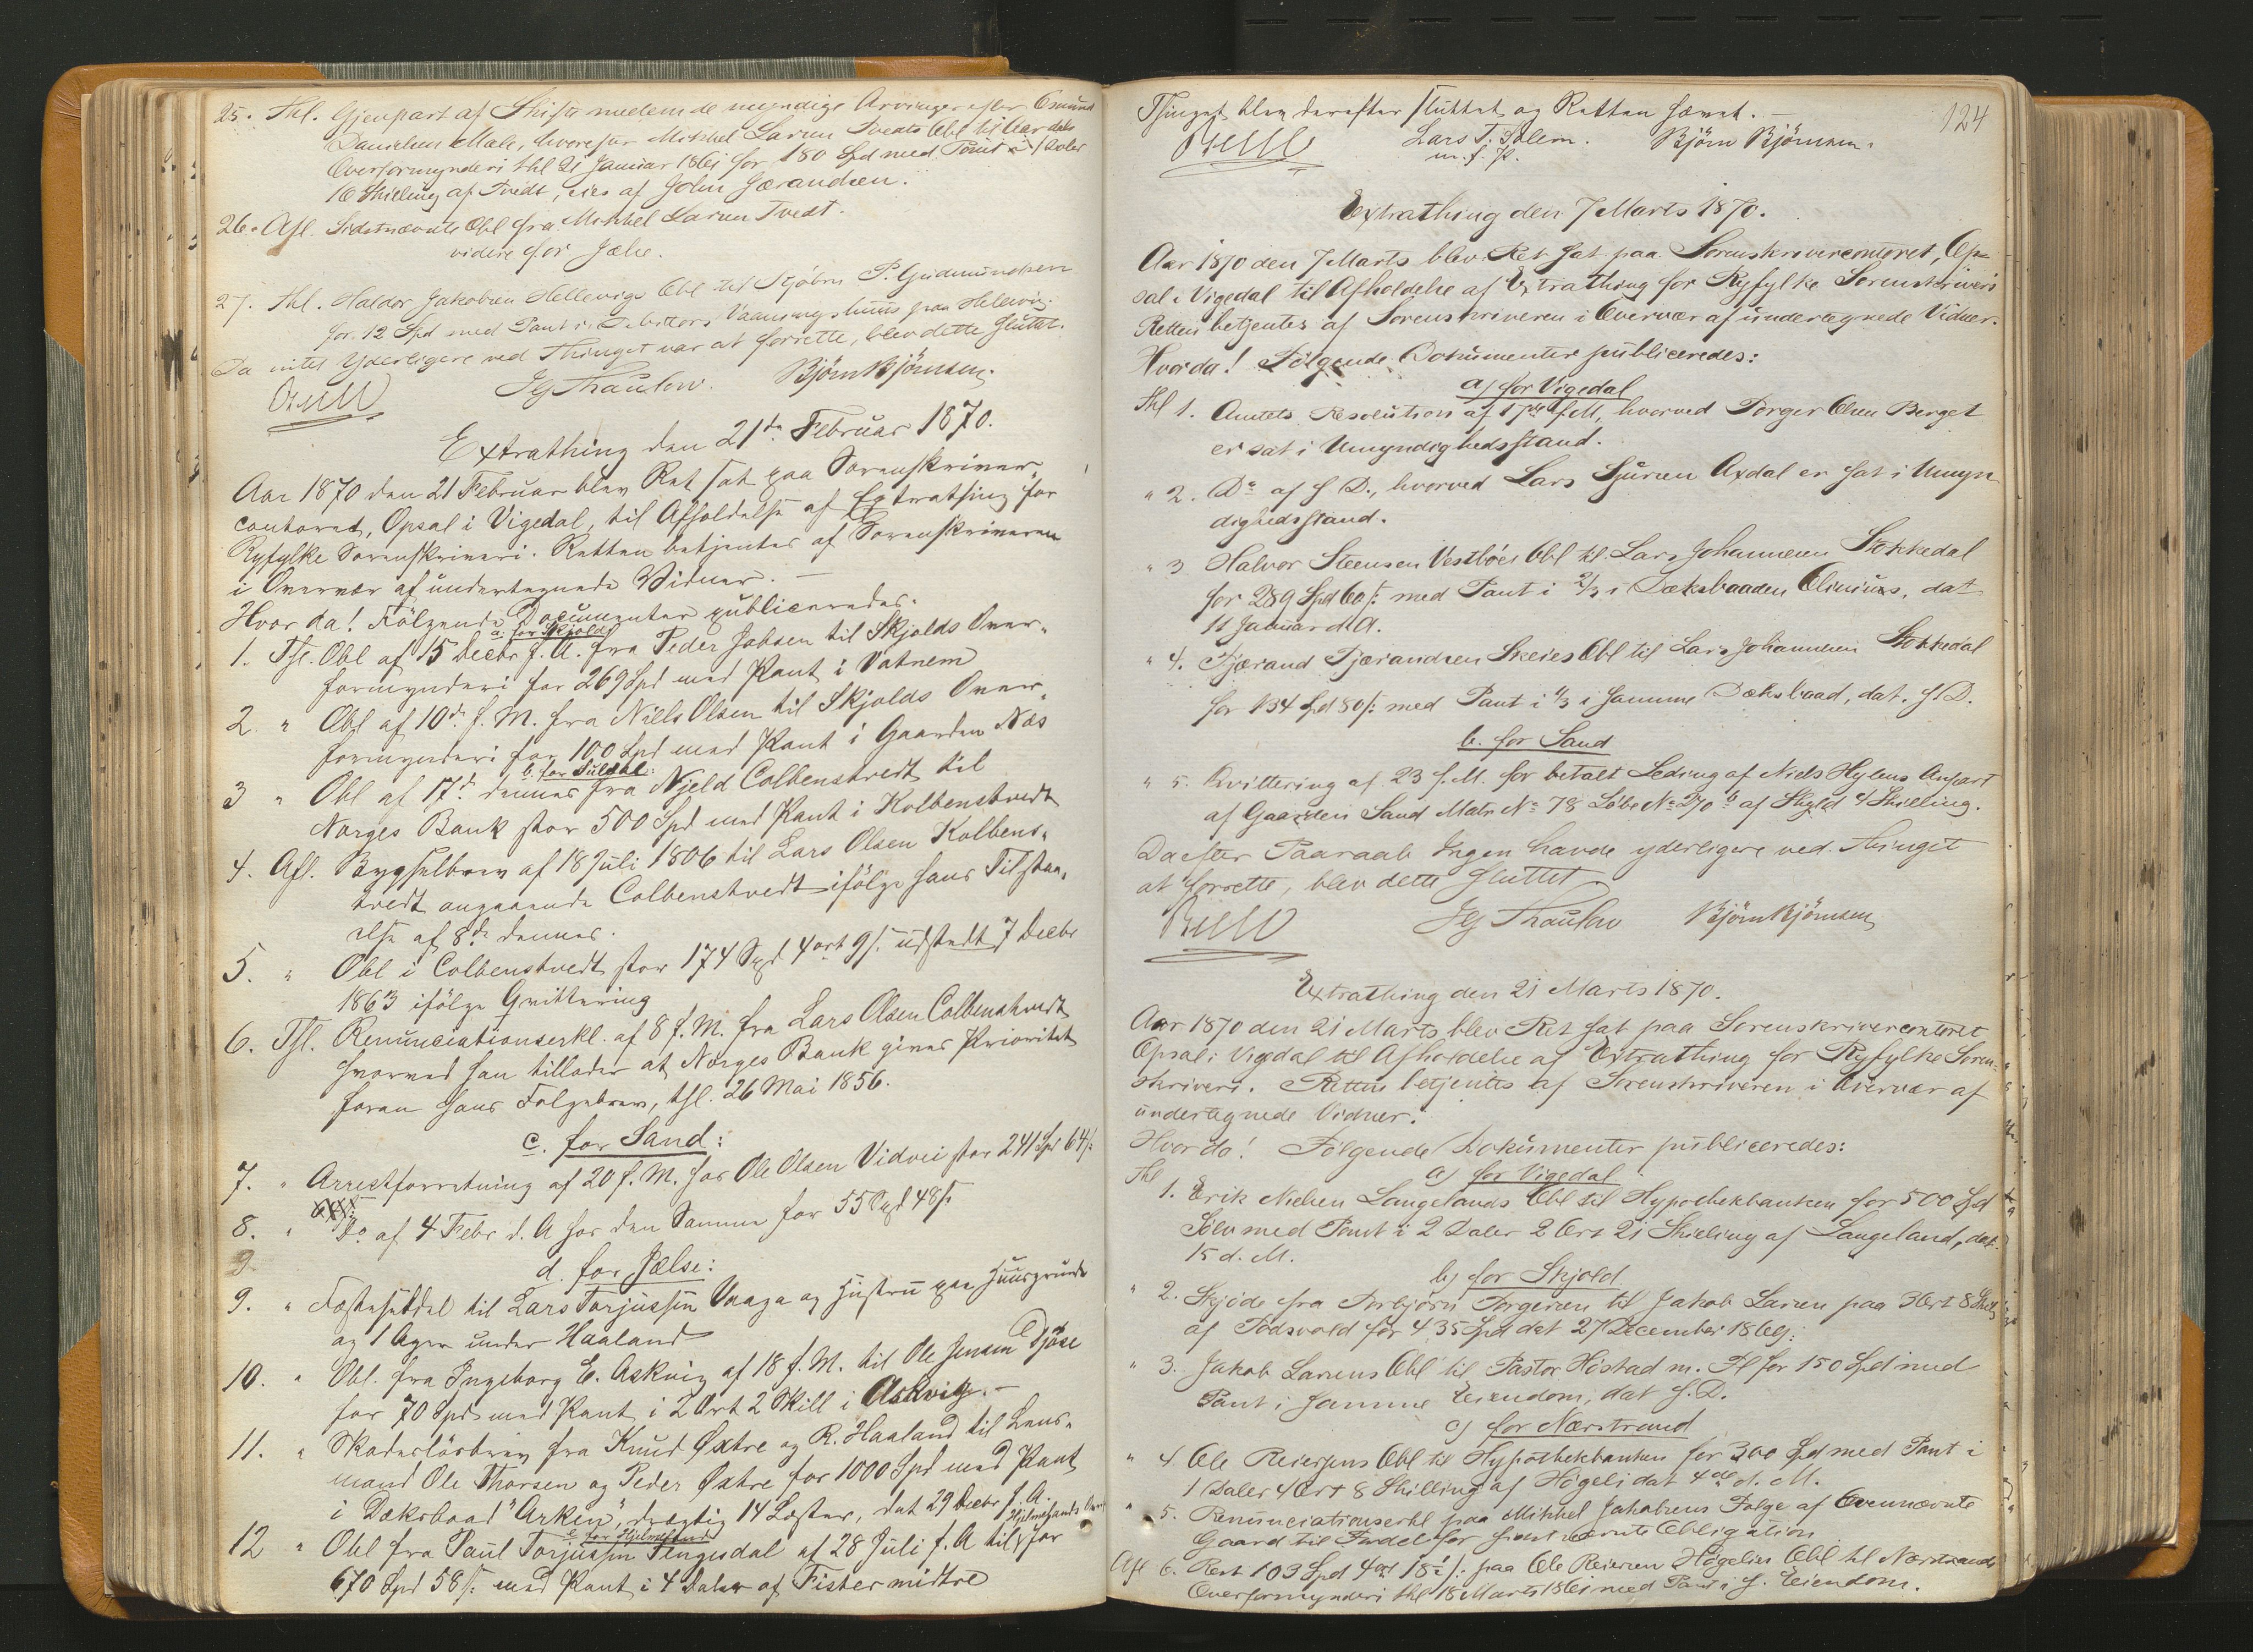 25. Thl. Gjenpart af Skifte mellem de myndige Arvinger efter Osmund
Danielsen Mæle, hvorefter Mikkel Larsen Tvedts Obl til Aardals
Overformynderi thl 21 Januar 1861 for 180 Spd med Pant i 1 Daler
16 Skilling af Tvedt, eies af John Gærandsen.
26. Afl. Sidstnævnte Obl fra Mikkel Larsen Tvedt.
videre for Jælse.
27. Thl. Haldor Jakobsen Hellevigs Obl til Torbjørn P. Gudmundsen
for 12 Spd med Pant i Debitors Vaaningshuus paa Helevig.
Da intet Yderligere ved Thinget var at forrette, blev dette sluttet.
Jg Thaulow. Bjørn Bjørnsen.
Extrathing den 21de Februar 1870.
Aar 1870 den 21 Februar blev Ret sat paa Sorenskriver-
contoret, Opsal i Vigedal, til Afholdelse af Extrathing for
Ryfylke Sorenskriveri. Retten betjentes af Sorenskriveren
i Overvær af undertegnede Vidner. —
Hvor da! Følgende Documenter publiceredes.
a. for Skjold
1. Thl. Obl af 15 Decbr f. A. fra Peder Jobsen til Skjolds Over-
formynderi for 269 Spd med Pant i Vatnem
2. " Obl af 10de f. M. fra Niels Olsen til Skjolds Over-
formynderi for 100 Spd med Pant i Gaarden Næs
b. for Suldal:
3 " Obl af 17de dennes fra Njeld Colbenstvedt til
Norges Bank stor 500 Spd med Pant i Kolbenstvedt
4. Afl. Bygselbrev af 18 Juli 1806 til Lars Olsen Kolbens-
tvedt angaaende Colbenstvedt ifølge hans Tilstaa-
else af 8de dennes.
5. " Obl i Colbenstvedt stor 174 Spd 4 ort 9 s. udstedt 7 Decbr
1863 ifølge Qvittering
6. Thl. Renunciationserkl. af 8 f. M. fra Lars Olsen Colbenstvedt
hvorved han tillader at Norges Bank gives Prioritet
foran hans Følgebrev, thl. 26 Mai 1856.
c. for Sand:
7. " Arrestforretning af 20 f. M. hos Ole Olsen Vidvei stor 241 Spd 64 s:
8. " Do af 4 Febr d. A hos den Samme for 55 Spd 48 s
9
d. for Jælse:
9. " Fæstesæddel til Lars Torjussen Vaaga og Hustru paa Huusgrund
og 1 Ager under Haaland
10. " Obl. fra Ingeborg E. Askvig af 18 f. M. til Ole Jensen Tjøse
for 70 Spd med Pant i 2 Ort 2 Skill i Askvig. —
11. " Skadesløsbrev fra Knud Østre og R. Haaland til Lens-
mand Ole Thorsen og Peder Østre for 1000 Spd med Pant
i Dæksbaad "Arken", drægtig 14 Læster, dat 29 Decbr f. A.
e for Hjelmeland
12 " Obl fra Paul Torjussen Tengesdal af 28 Juli f. A til Hjelmelands for
670 Spd 58 s: med Pant i 4 Daler af Fister midtre
124
Thinget blev derefter sluttet og Retten hævet. —
Lars T. Sølem. Bjørn Bjørnsen.
m. f. P.
Extrathing den 7 Marts 1870.
Aar 1870 den 7 Marts blev Ret sat paa Sorenskrivercontoret, Op-
sal i Vigedal til Afholdelse af Extrathing for Ryfylke Sorenskriveri
Retten betjentes af Sorenskriveren i Overvær af undertegnede Vidner.
Hvor da! Følgende Dokumenter publiceredes:
a) for Vigedal
Thl 1. Amtets Resolution af 17de f. M., hvorved Torger Olsen Berget
er sat i Umyndighedsstand.
" 2. Do af s D., hvorved Lars Sjursen Axdal er sat i Umyn
dighedsstand.
" 3 Halvor Steensen Vestbøes Obl til Lars Johannesen Stokkedal
for 289 Spd 60 s: med Pant i 2/3 i Dæksbaaden Elinius, dat
11 Januar d. A.
" 4. Tjærand Tjærandsen Skeies Obl til Lars Johannesen Stokkedal
for 134 Spd 80 s: med Pant i 1/3 i samme Dæksbaad, dat. s D.
b. for Sand
" 5. Kvittering af 23 f. M. for betalt Leding af Niels Hylens Anpart
af Gaarden Sand Matr No 78 Løbe No 270 b af Skyld 4 Skilling.
Da efter Paaraab Ingen havde yderligere ved Thinget
at forrette, blev dette sluttet
Jg Thaulow Bjørn Bjørnsen
Extrathing den 21 Marts 1870.
Aar 1870 den 21 Marts blev Ret sat paa Sorenskrivercontoret
Opsal i Vigdal til Afholdelse af Extrathing for Ryfylke Soren-
skriveri. Retten betjentes af Sorenskriveren i Overvær af
undertegnede Vidner.
Hvor da! Følgende Dokumenter publiceredes:
a) for Vigedal
Thl
1. Erik Nielsen Langelands Obl til Hypothekbanken for 500 Spd
Sølv med Pant i 2 Daler 2 Ort 21 Skilling af Langeland, dat.
15 d. M.
b) for Skjold
" 2. Skjøde fra Torbjørn Torgersen til Jakob Larsen paa 3 Ort 8 Skill
af Todsvold for 435 Spd dat 27 December 1869:
" 3. Jakob Larsens Obl til Pastor Høstad m. Fl for 150 Spd med
Pant i samme Eiendom, dat s. D.
c) for Nærstrand
" 4 Ole Reiersens Obl til Hypothekbanken for 300 Spd med Pant i
1 Daler 4 Ort 8 Skilling af Høgeli dat 4de d. M.
" 5. Renunciationserkl paa Mikkel Jakobsens Følge af Ovennævnte
Gaard til Fordel for sidstnævnte Obligation
Afl 6. Rest 103 Spd 4 ort 18 1/2 s: paa Ole Reiersen Høgelies Obl til Nærstrands
Overformynderi thl 18 Marts 1861 med Pant i s. Eiendom.